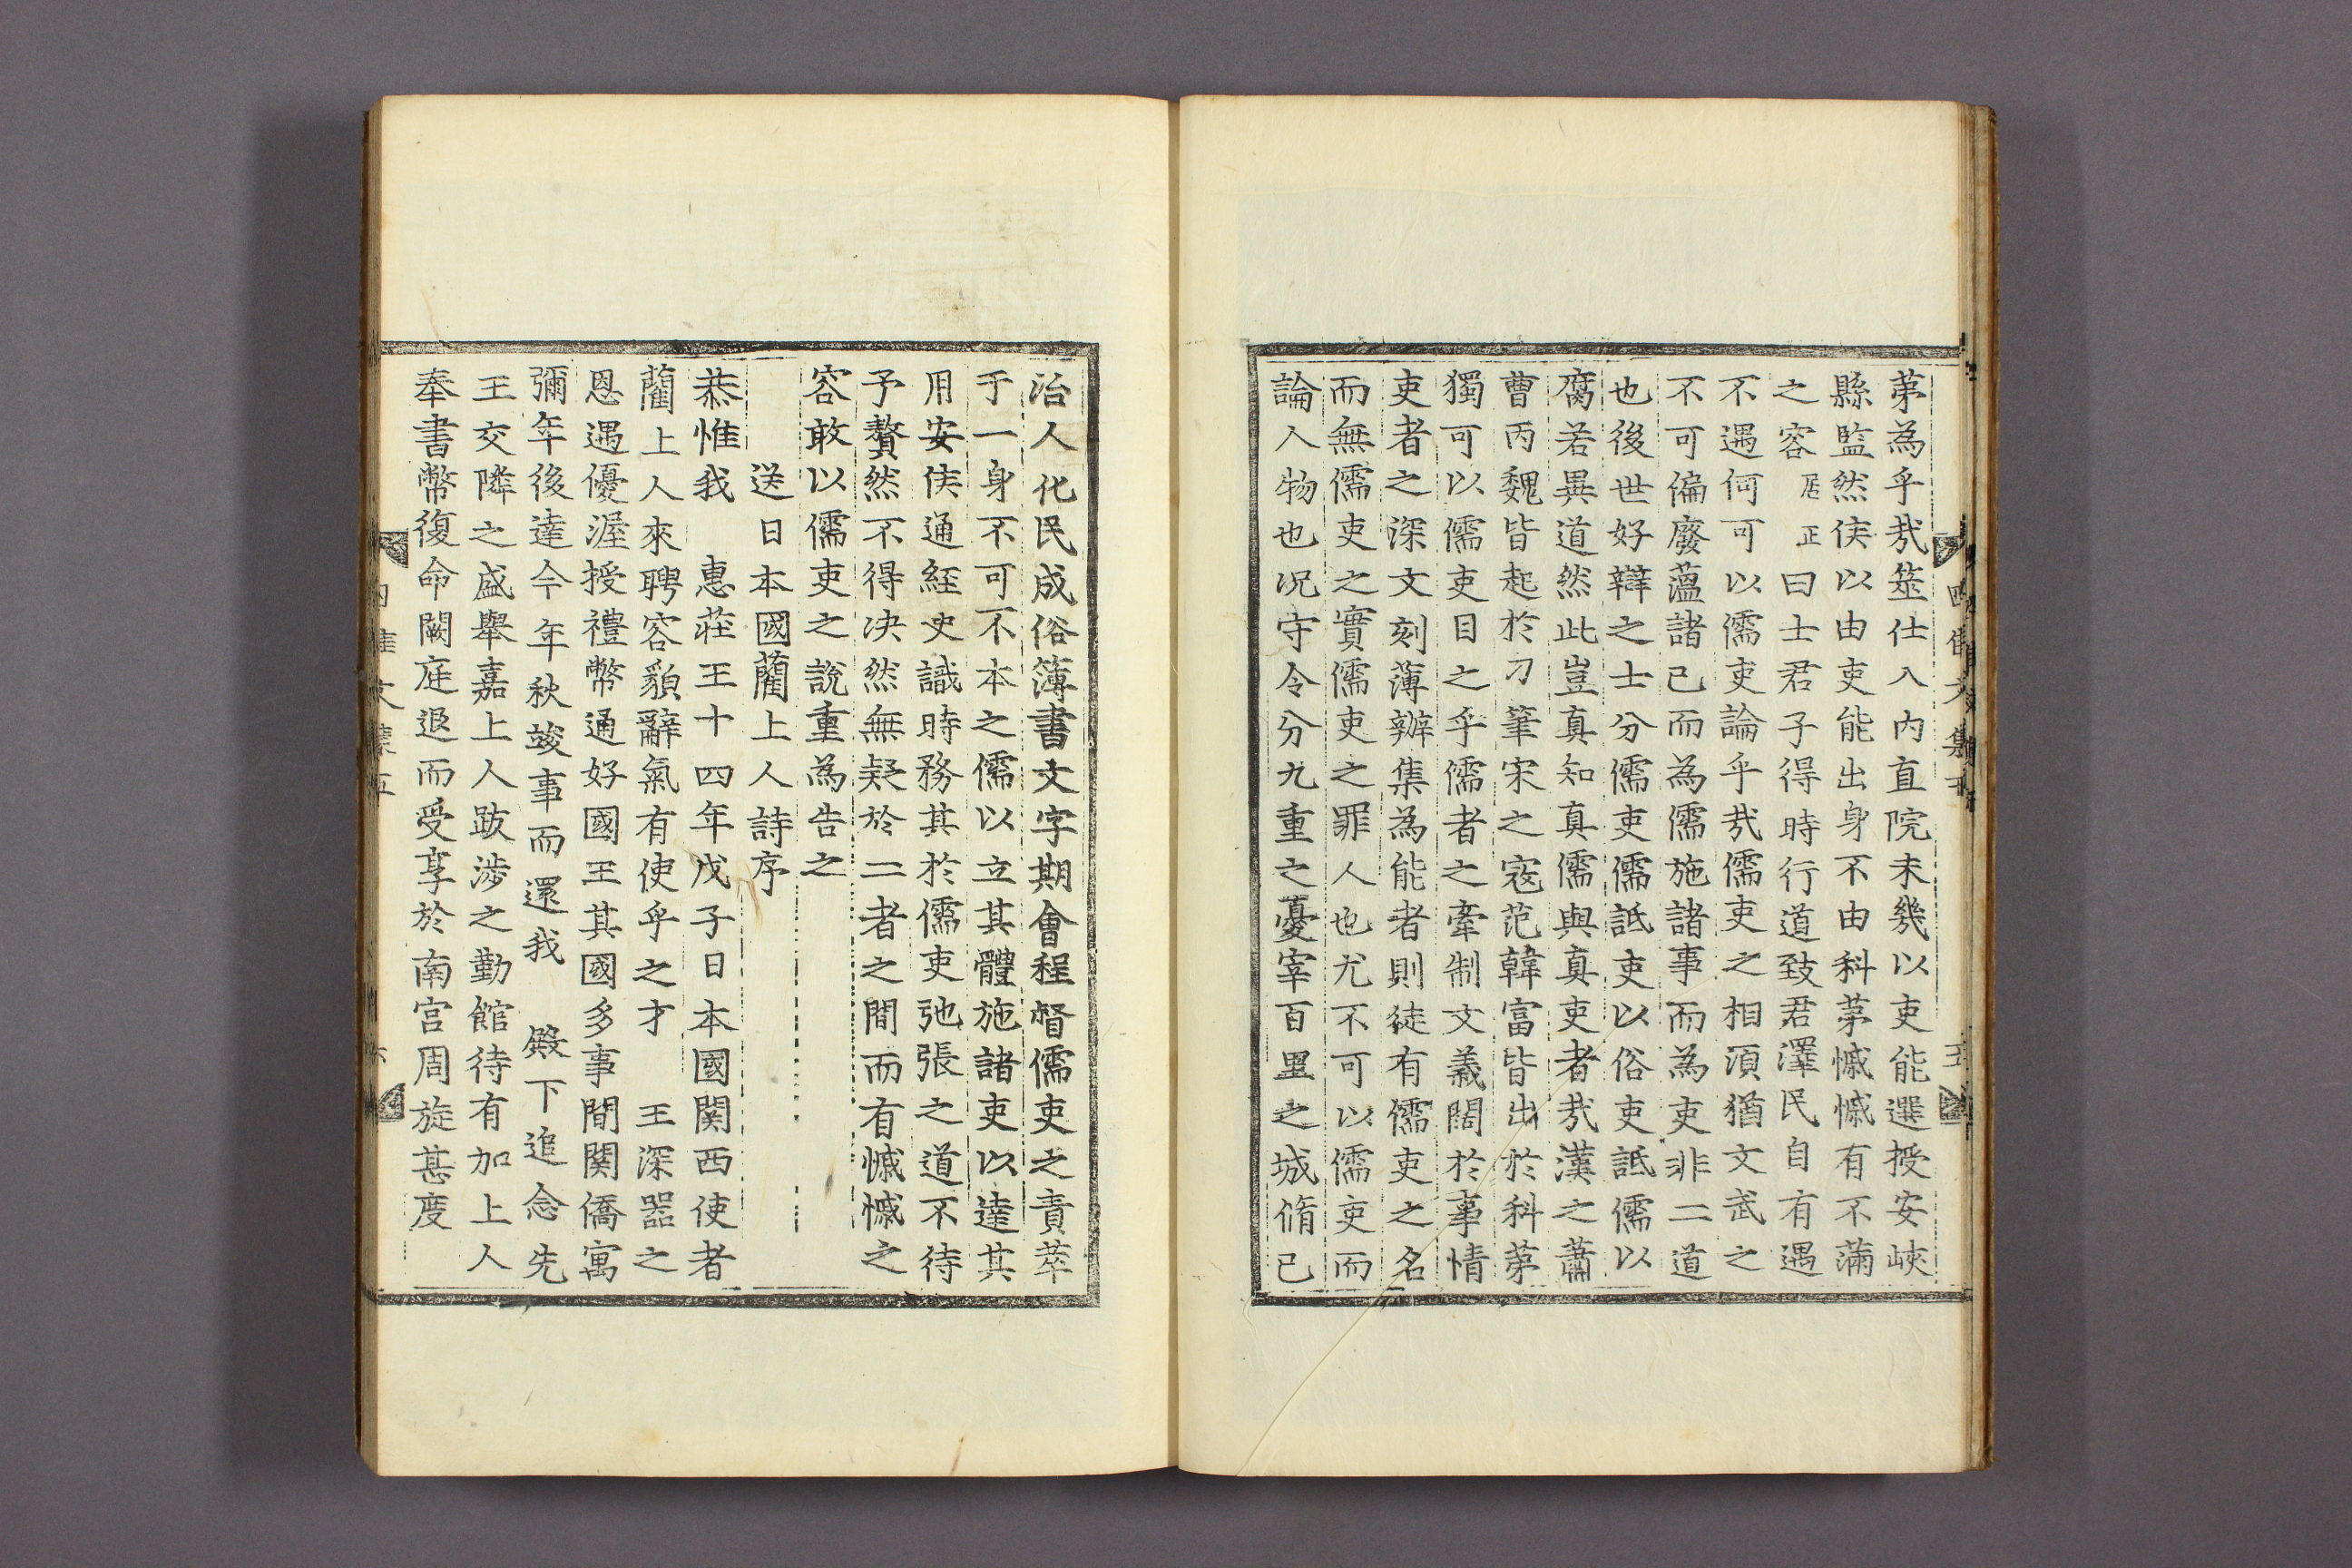 苐為乎㢤筮仕入內直院未幾以吏能選授安峽
縣監然侯以由吏能出身不由科苐慽慽有不滿
之容居正曰士君子得時行道致君澤民自有遇
不遇何可以儒吏論乎㢤儒吏之相湏猶文武之
不可偏廢蘊諸己而為儒施諸事而為吏非二道
也後世好辯之士分儒吏儒詆吏以俗吏詆儒以
腐若異道然此豈真知真儒與真吏者㢤漢之蕭
曹丙魏皆起於刀筆宋之寇范韓富皆出於科苐
獨可以儒吏目之乎儒者之牽制文義闊於事情
吏者之深文刻薄辦集為能者則徒有儒吏之名
而無儒吏之實儒吏之罪人也尤不可以儒吏而
論人物也况守令分九重之憂宰百里之城脩己
治人化民成俗簿書文字期會程督儒吏之責萃
于一身不可不本之儒以立其體施諸吏以達其
用安侯通經史識時務其於儒吏弛張之道不待
予贅然不得决然無疑於二者之間而有慽慽之
容敢以儒吏之說重為告之
送日本國藺上人詩序
恭惟我 惠莊王十四年戊子日本國関西使者
藺上人來聘容貌辭氣有使乎之才 王深器之
恩遇優渥授禮幣通好國王其國多事間関僑寓
彌年後達今年秋竣事而還我 殿下追念先
王交隣之盛舉嘉上人跋涉之勤館待有加上人
奉書幣復命闕庭退而受享於南宮周旋甚度